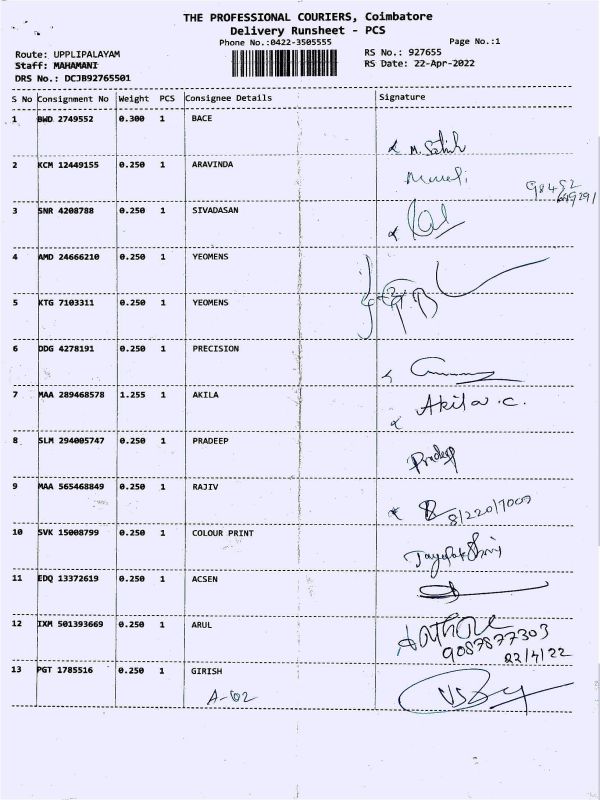 THE PROFESSIONAL COURIERS, Coimbatore
Delivery Runsheet - PCS
Phone No.:0422-3505555 Page No.:1
Route: UPPLIPALAYAM RS No.: 927655
Staff: MAHAMANI RS Date: 22-Apr-2022
DRS No.: DCJB92765501
S No Consignment No Weight PCS Consignee Details Signature
1 BWD 2749552 0.300 1 BACE
2 KCM 12449155 0.250 1 ARAVINDA
3 SNR 4208788 0.250 1 SIVADASAN
4 AMD 24666210 0.250 1 YEOMENS
5 KTG 7103311 0.250 1 YEOMENS
6 DDG 4278191 0.250 1 PRECISION
7 MAA 289468578 1.255 1 AKILA
Akila . c.
8 SLM 294005747 0.250 1 PRADEEP
Pradeep
9 MAA 565468849 0.250 1 RAJIV
10 SVK 15008799 0.250 1 COLOUR PRINT
11 EDQ 13372619 0.250 1 ACSEN
12 IXM 501393669 0.250 1 ARUL
9087877303
22/4/22
13 PGT 1785516 0.250 1 GIRISH